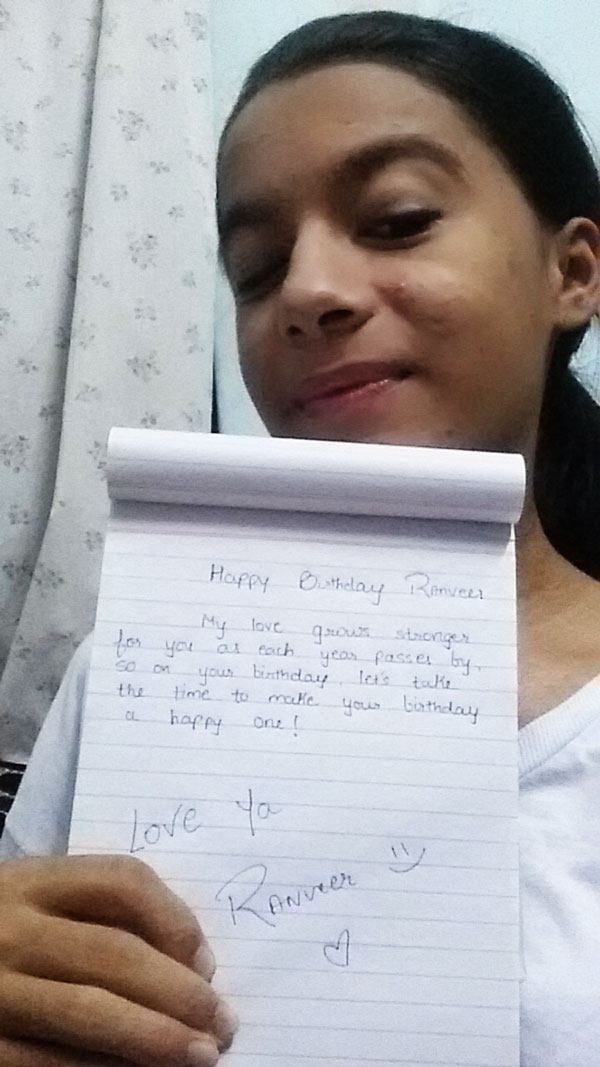 Happy Birthday Ranveer
My love grows stronger
for you as each year passes by,
so on your birthday, let's take
the time to make your birthday
a happy one!
Love Ya
Ranveer